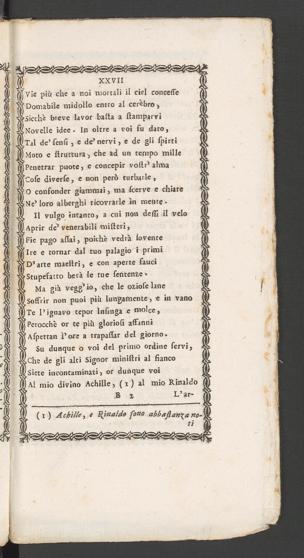 XXVII
Vie più che a noi mortali il ciel concesse
Domabile midollo entro al cerèbro,
Sicchè breve lavor basta a stamparvi
Novelle idee. In oltre a voi fu dato,
Tal de' sensi, e de' nervi, e de gli spirti
Moto e struttura, che ad un tempo mille
Penetrar puote, e concepir vostr' alma
Cose diverse, e non però turbarle,
O confonder giammai, ma scerve e chiare
Ne' loro alberghi ricovrarle in mente.
Il vulgo intanto, a cui non dessi il velo
Aprir de' venerabili misteri,
Fie pago assai, poichè vedrà sovente
Ire e tornar dal tuo palagio i primi
D'arte maestri, e con aperte fauci
Stupefatto berà le tue sentenze.
Ma già vegg'io, che le oziose lane
Soffrir non puoi più lungamente, e in vano
Te l'ignavo tepor lusinga e molce,
Perocchè or te più gloriosi affanni
Aspettan l'ore a trapassar del giorno.
Su dunque o voi del primo ordine servi,
Che de gli alti Signor ministri al fianco
Siete incontaminati, or dunque voi
Al mio divino Achille, (1) al mio Rinaldo
B 2 L'ar-
(1) Achille, e Rinaldo sono abbastanza no-
ti